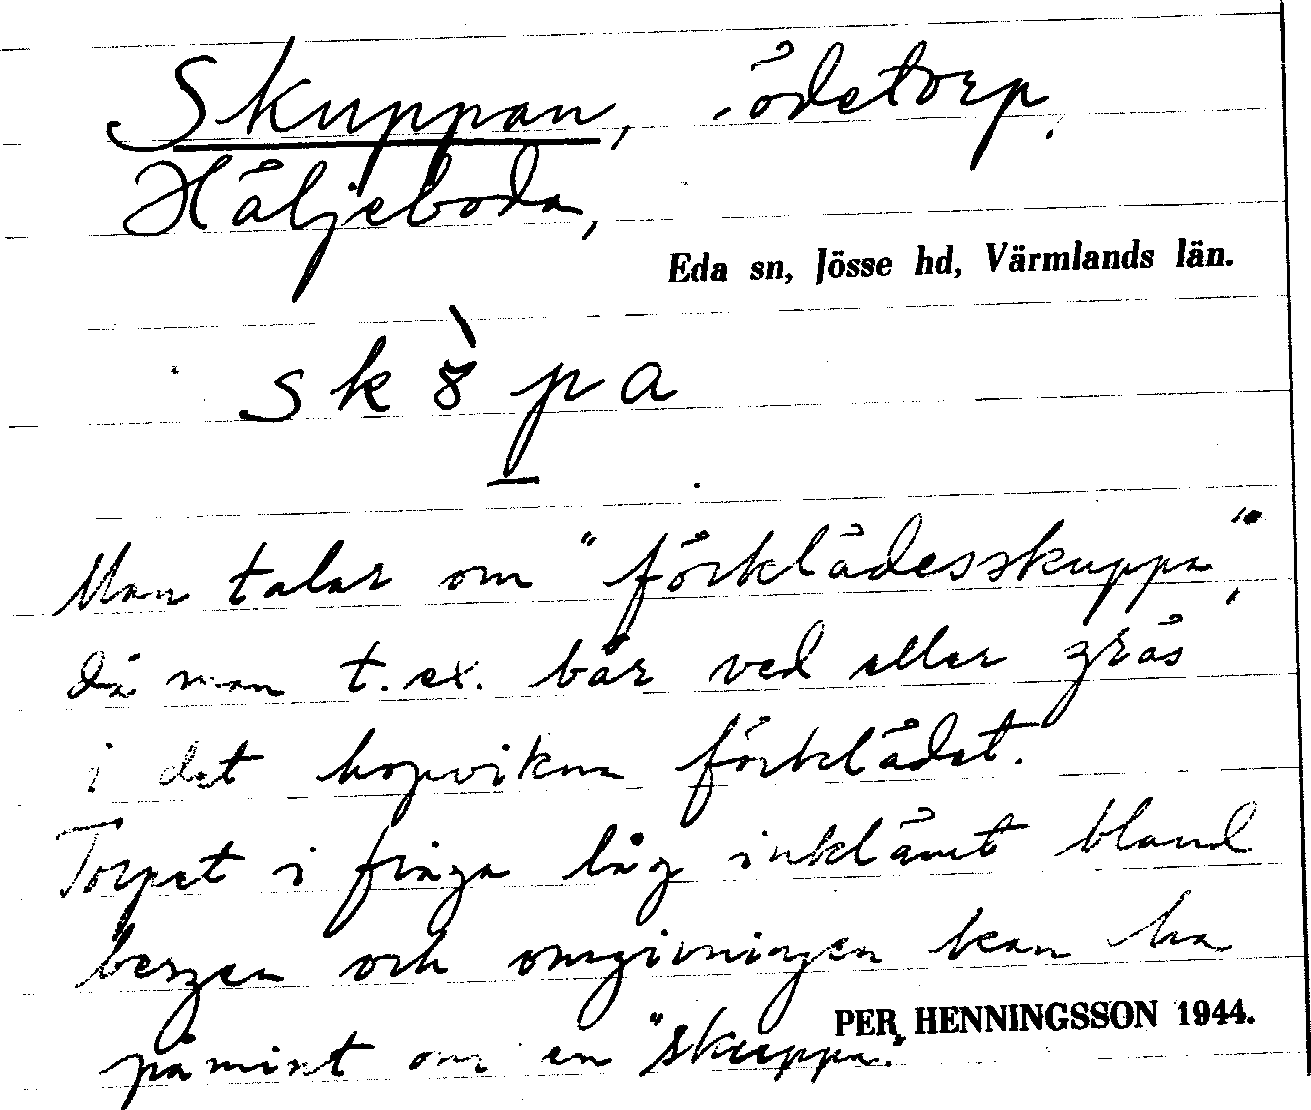 Skuppan, ödetorp.
Häljeboda,
Eda sn, Jösse hd, Värmlands län.
sk8̀pa
Man talar om "förklädesskuppa",
då man t.ex. bär ved eller gräs
i det hopvikna förklädet.
Torpet i fråga låg inklämt bland
bergen och omgivningen kan ha
påmint om en "skuppa."
PER HENNINGSSON 1944.